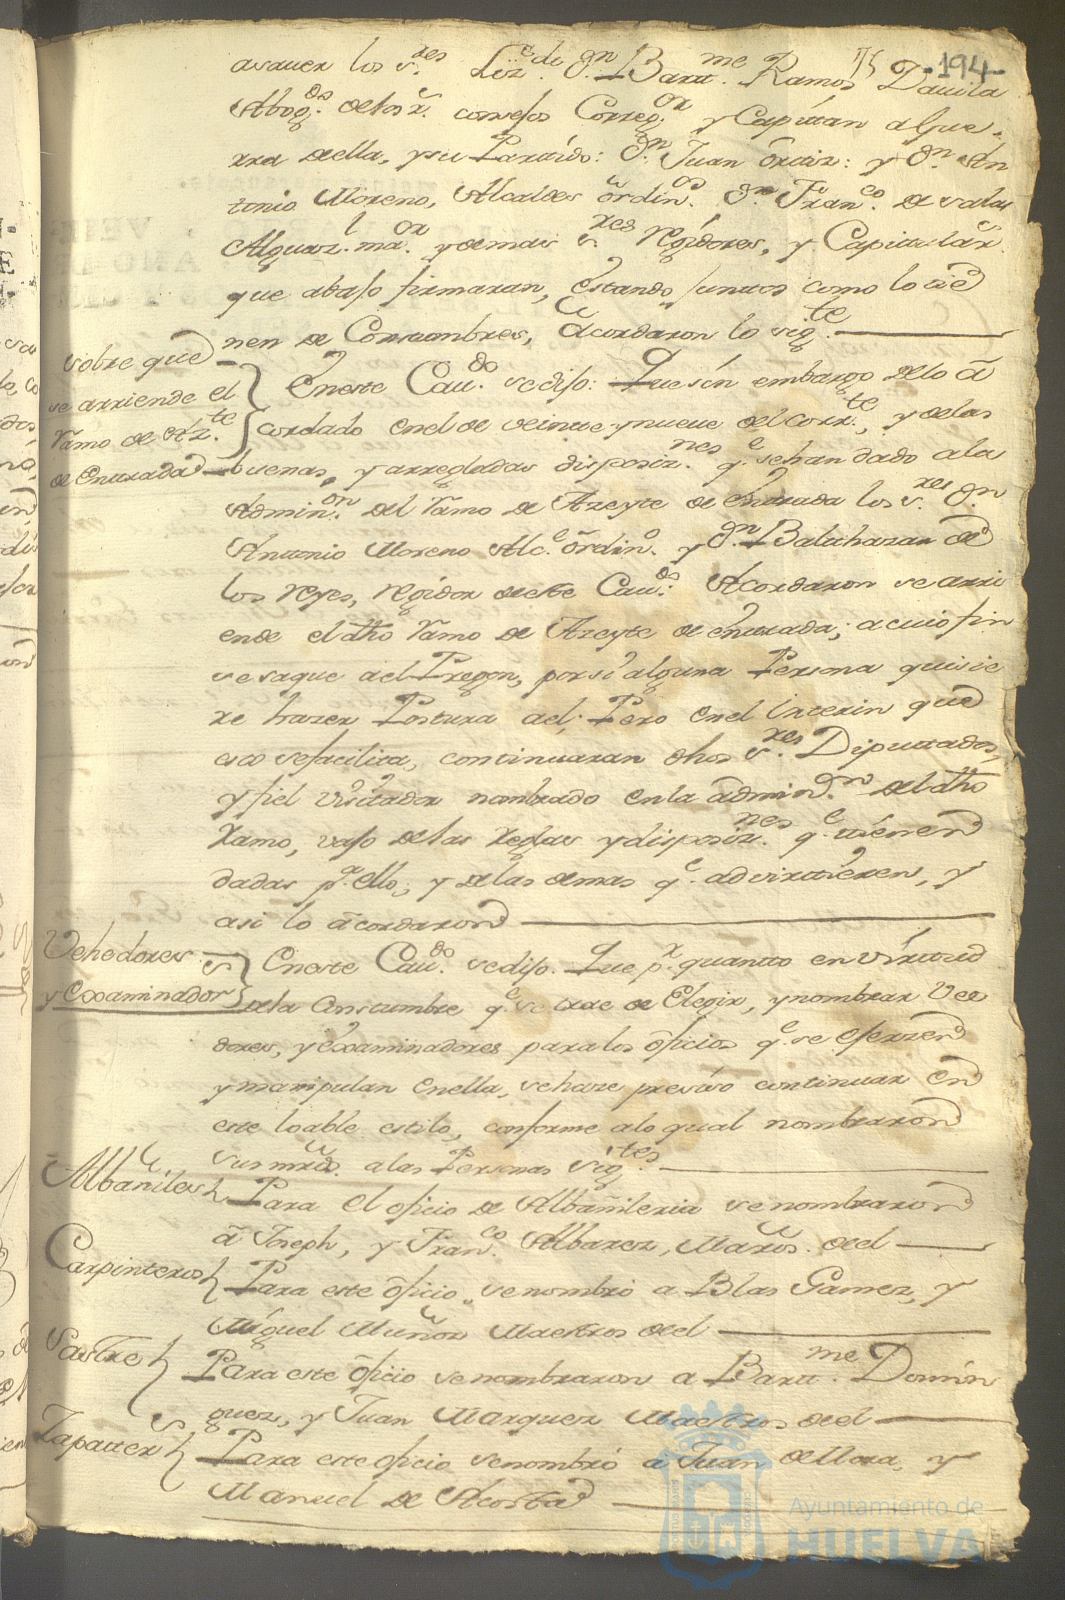 194
asauer los s.res Liz.do Dn. Bartt.me Ramos Dauila
Abog.do de los R.s consejos Correg.or y Capitan a Gue-
rra de ella, y su Partido: Dn. Juan Ortiz: y Dn. An
tonio Moreno, Alcaldes ordin.os Dn. Fran.co de Salas
Alguaz.l m.or y demas s.res rexidores, y Capitular.s
que abajo firmaran, estando juntos como lo tie
nen de Constumbres, acordaron lo sig.te
sobre que
se arriende el
Ramo de Az.te
de Entrada
En este Cau.do se dijo: Que sin embargo de lo a
cordado en el de veinte y nueve del corr.te, y de las
buenas, y arregladas disposiz.nes q.e se han dado a la
Admin.on del Ramo de Azeyte de entrada los s.res Dn
Antonio Moreno Alc.e ordin.o y Dn. Balthazar de
los reyes, rexidor de este Cau.do Acordaron se arri
ende el dho Ramo de Azeyte de entrada; a cuio fin
se saque a el Pregon, por si alguna Persona quisie
re hazer Postura a el; Pero en el interin que
esto se facilita, continuaran dhos s.res Diputtados,
y fiel visitador nombrado en la admin.on del dho
Ramo, vajo de las reglas y disposiz.nes q.e tienen
dadas p.a ello; y de las demas q.e advirttieren, y
asi lo acordaron
Vehedores
y examinador.s
En este Cau.do se dijo. Que p.r quantto en virtud
de la Constumbre q.e se trae de Elegir, y nombrar Vee
dores, y examinadores para los oficios q.e se ejerzen
y manipulan en ella, se haze preciso continuar en
este loable estilo, conforme a lo qual nombraron
sus mrds. a las Personas sig.tes
Albañiles
Para el oficio de Albañileria se nombraron
a Joseph, y Fran.co Albarez, Maros. de el
Carpinteros
Para este oficio, se nombró a Blas Gamez, y
Miguel Muñoz Maestros de el
Sastre
Para este oficio se nombraron a Bartt.me Domin
guez, y Juan Marquez Maestros de el
Zapatter.s
Para este oficio se nombró a Juan de Mora, y
Manuel de Acosta
Ayuntamiento de
HUELVA